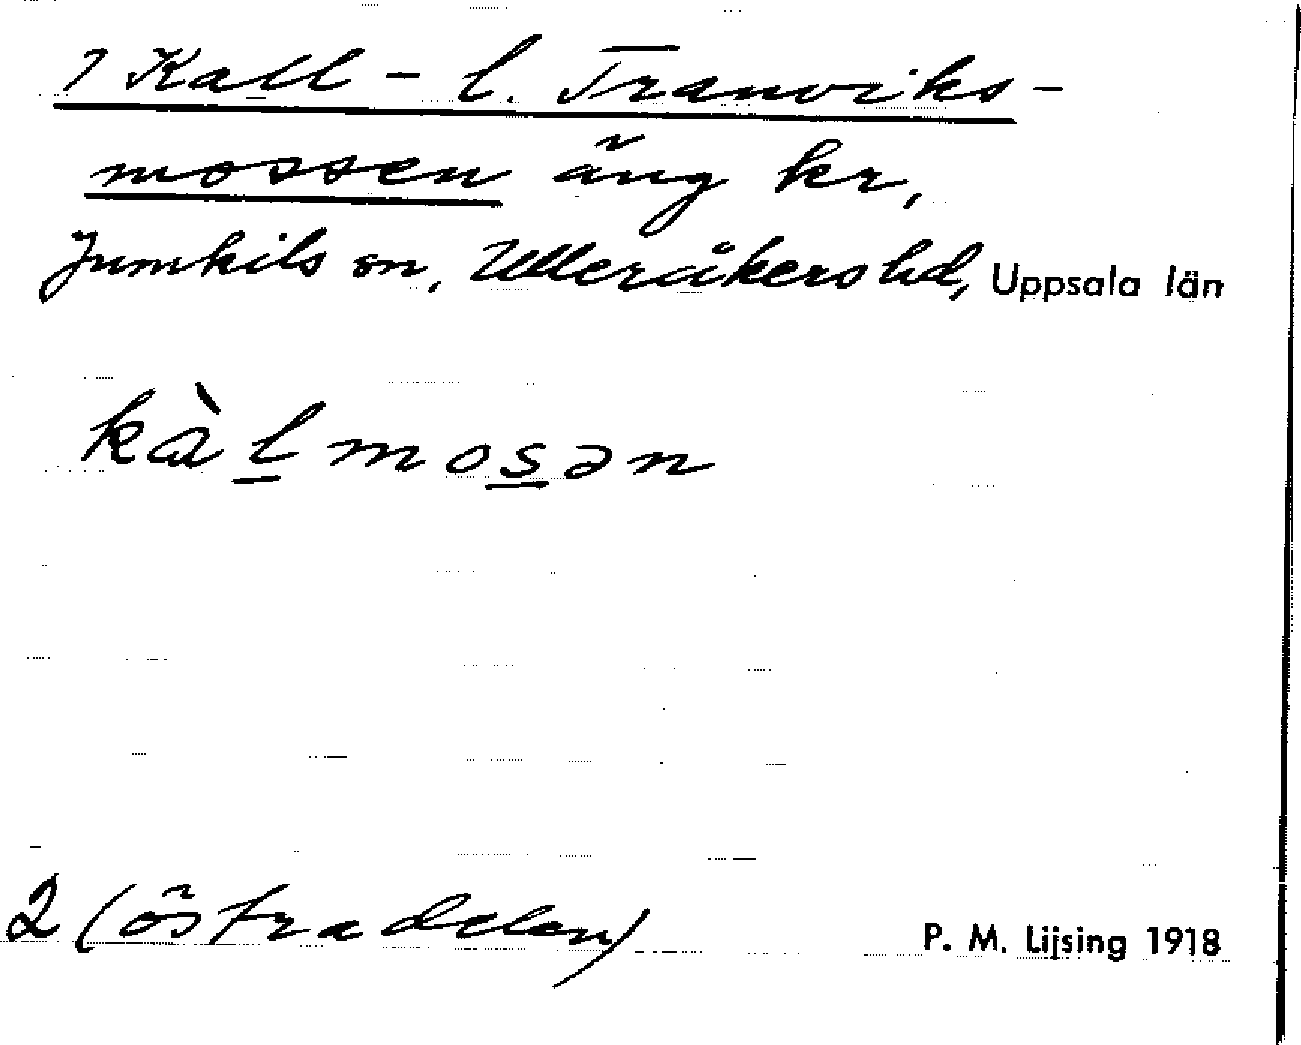 1 Kall- l. Tranviks-
mossen äng kr,
Jumkils sn, Ulleråkers hd, Uppsala län
kàlmosən
2 (östra delen)
P. M. Lijsing 1918